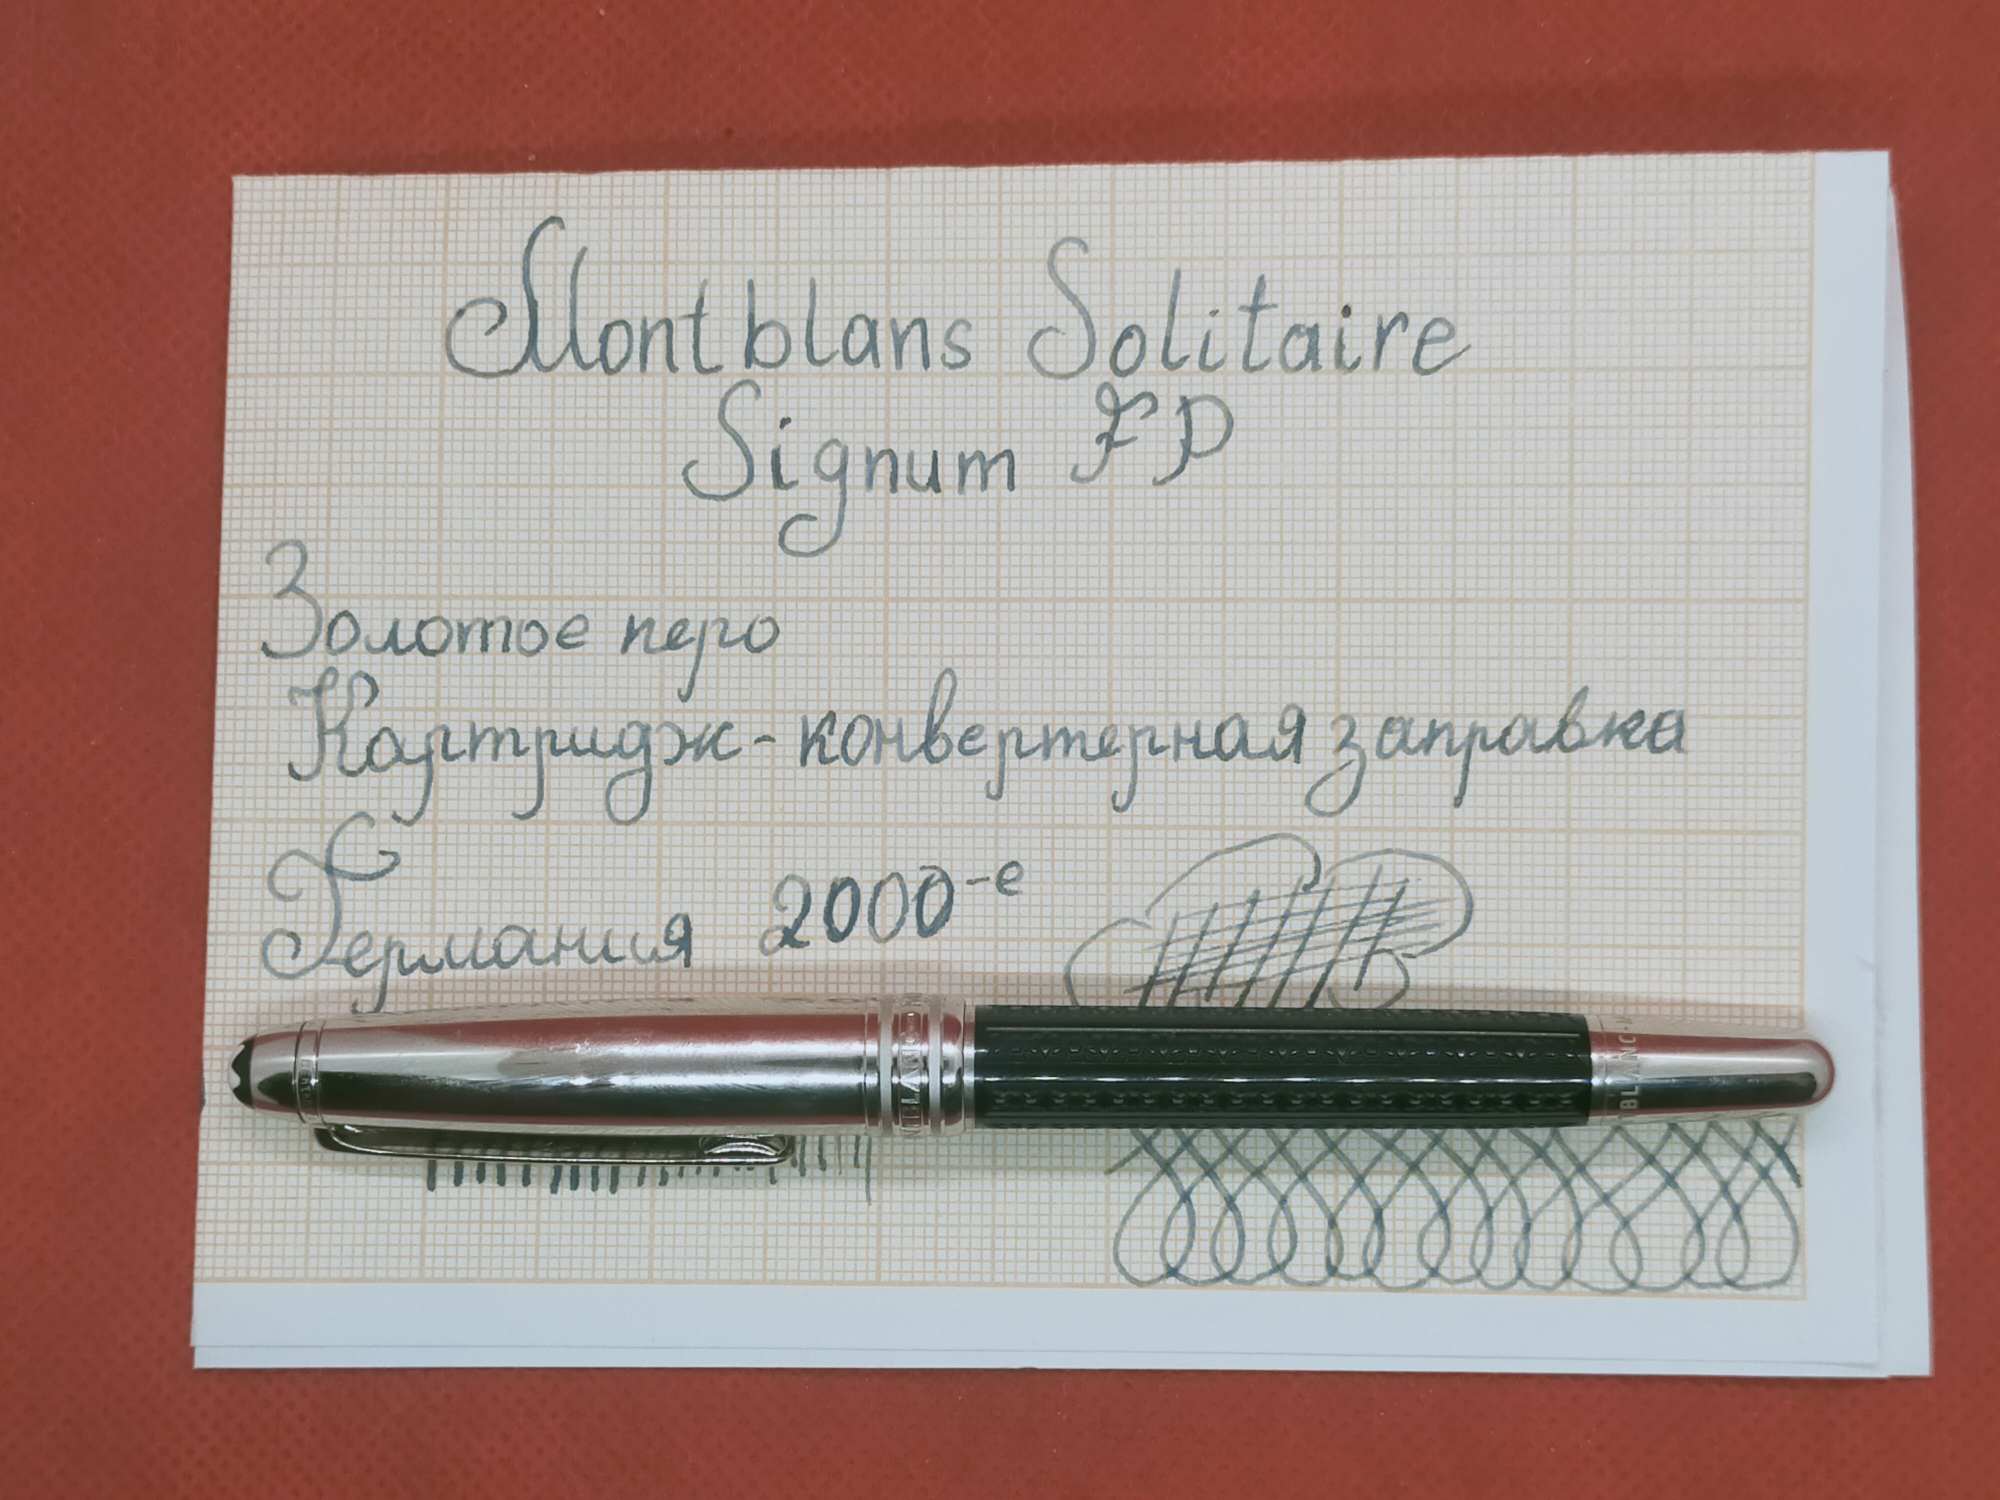 Montblans Solitaire
Signum FP
Золотое перо
Картридж-конвертерная заправка
Германия 2000-е